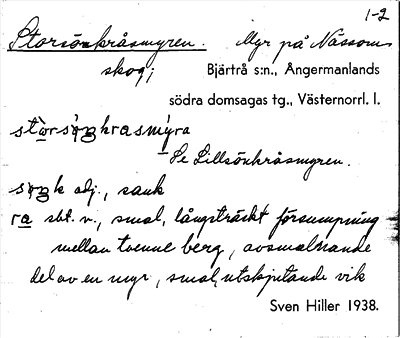 1-2
Storsönkråsmyren. Myr på Nässoms
skog;
Bjärtrå s:n., Ångermanlands
södra domsagas tg., Västernorrl. l.
Se Lillsönkråsmyren.
adj., sank
ra sbt. n., smal, långsträckt försumpning
mellan tvenne berg, avsmalnande
del av en myr, smal, utskjutande vik
Sven Hiller 1938.